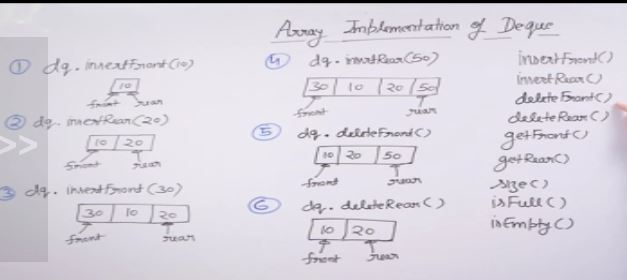 Array Implementation of Deque
① dq. insertFront(10)
10
front rear
② dq. insertRear(20)
10 20
front rear
3 dq. insertFront(30)
30 10 20
front rear
④ dq. insertRear(50)
30 10 20 50
front rear
⑤ dq. deleteFront()
10 20 50
front rear
⑥ dq. deleteRear()
10 20
front rear
insertFront()
insertRear()
deleteFront()
deleteRear()
getFront()
getRear()
size()
isFull()
isEmpty()